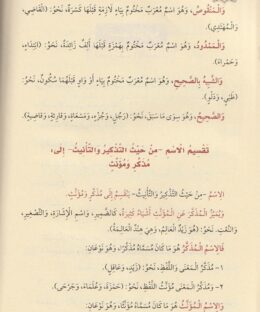 وَالْمَنْقُوصُ، وَهُوَ اسْمٌ مُعْرَبٌ مَخْتُومٌ بِيَاءٍ لَازِمَةٍ قَبْلَهَا كَسْرَةٌ، نَحْوُ: (الْقَاضِي،
وَالْمُهْتَدِي).
وَالْمَمْدُودُ، وَهُوَ اسْمٌ مُعْرَبٌ مَخْتُومٌ بِهَمْزَةٍ قَبْلَهَا أَلِفٌ زَائِدَةٌ، نَحْوُ: (ابْتِدَاءٍ،
وَحَمْرَاءَ).
وَالشَّبِيهُ بِالصَّحِيحِ، وَهُوَ اسْمٌ مُعْرَبٌ مَخْتُومٌ بِيَاءٍ أَوْ وَاوٍ قَبْلَهُمَا سُكُونٌ، نَحْوُ:
(ظَبْيٍ، وَدَلْوٍ).
وَالصَّحِيحُ، وَهُوَ سِوَى مَا سَبَقَ، نَحْوُ: (رَجُلٍ، وَجُزْءٍ، وَمَسْعَاةٍ، وَقَارِئَةٍ، وَقَاصِيَةٍ).
تَقْسِيمُ الِاسْمِ -مِنْ حَيْثُ التَّذْكِيرُ وَالتَّأْنِيثُ- إِلَى،
مُذَكَّرٍ وَمُؤَنَّثٍ
الِاسْمُ -مِنْ حَيْثُ التَّذْكِيرُ وَالتَّأْنِيثُ- يَنْقَسِمُ إِلَى مُذَكَّرٍ وَمُؤَنَّثٍ.
وَيُمَيَّزُ الْمُذَكَّرُ عَنِ الْمُؤَنَّثِ أَشْيَاءُ كَثِيرَةٌ، كَالضَّمِيرِ، وَاسْمِ الْإِشَارَةِ، وَالتَّصْغِيرِ،
وَالنَّعْتِ. نَحْوُ: (هُوَ زَيْدٌ الْعَالِمُ، وَهِيَ هِنْدٌ الْعَالِمَةُ).
فَالِاسْمُ الْمُذَكَّرُ هُوَ مَا كَانَ مُسَمَّاهُ مُذَكَّرًا، وَهُوَ نَوْعَانِ:
١- مُذَكَّرُ الْمَعْنَى وَاللَّفْظِ، نَحْوُ: (زَيْدٍ، وَعَاقِلٍ).
٢- مُذَكَّرُ الْمَعْنَى مُؤَنَّثُ اللَّفْظِ، نَحْوُ: (حَمْزَةَ، وَعُلَمَاءَ، وَجَرْحَى).
وَالِاسْمُ الْمُؤَنَّثُ هُوَ مَا كَانَ مُسَمَّاهُ مُؤَنَّثًا، وَهُوَ نَوْعَانِ: